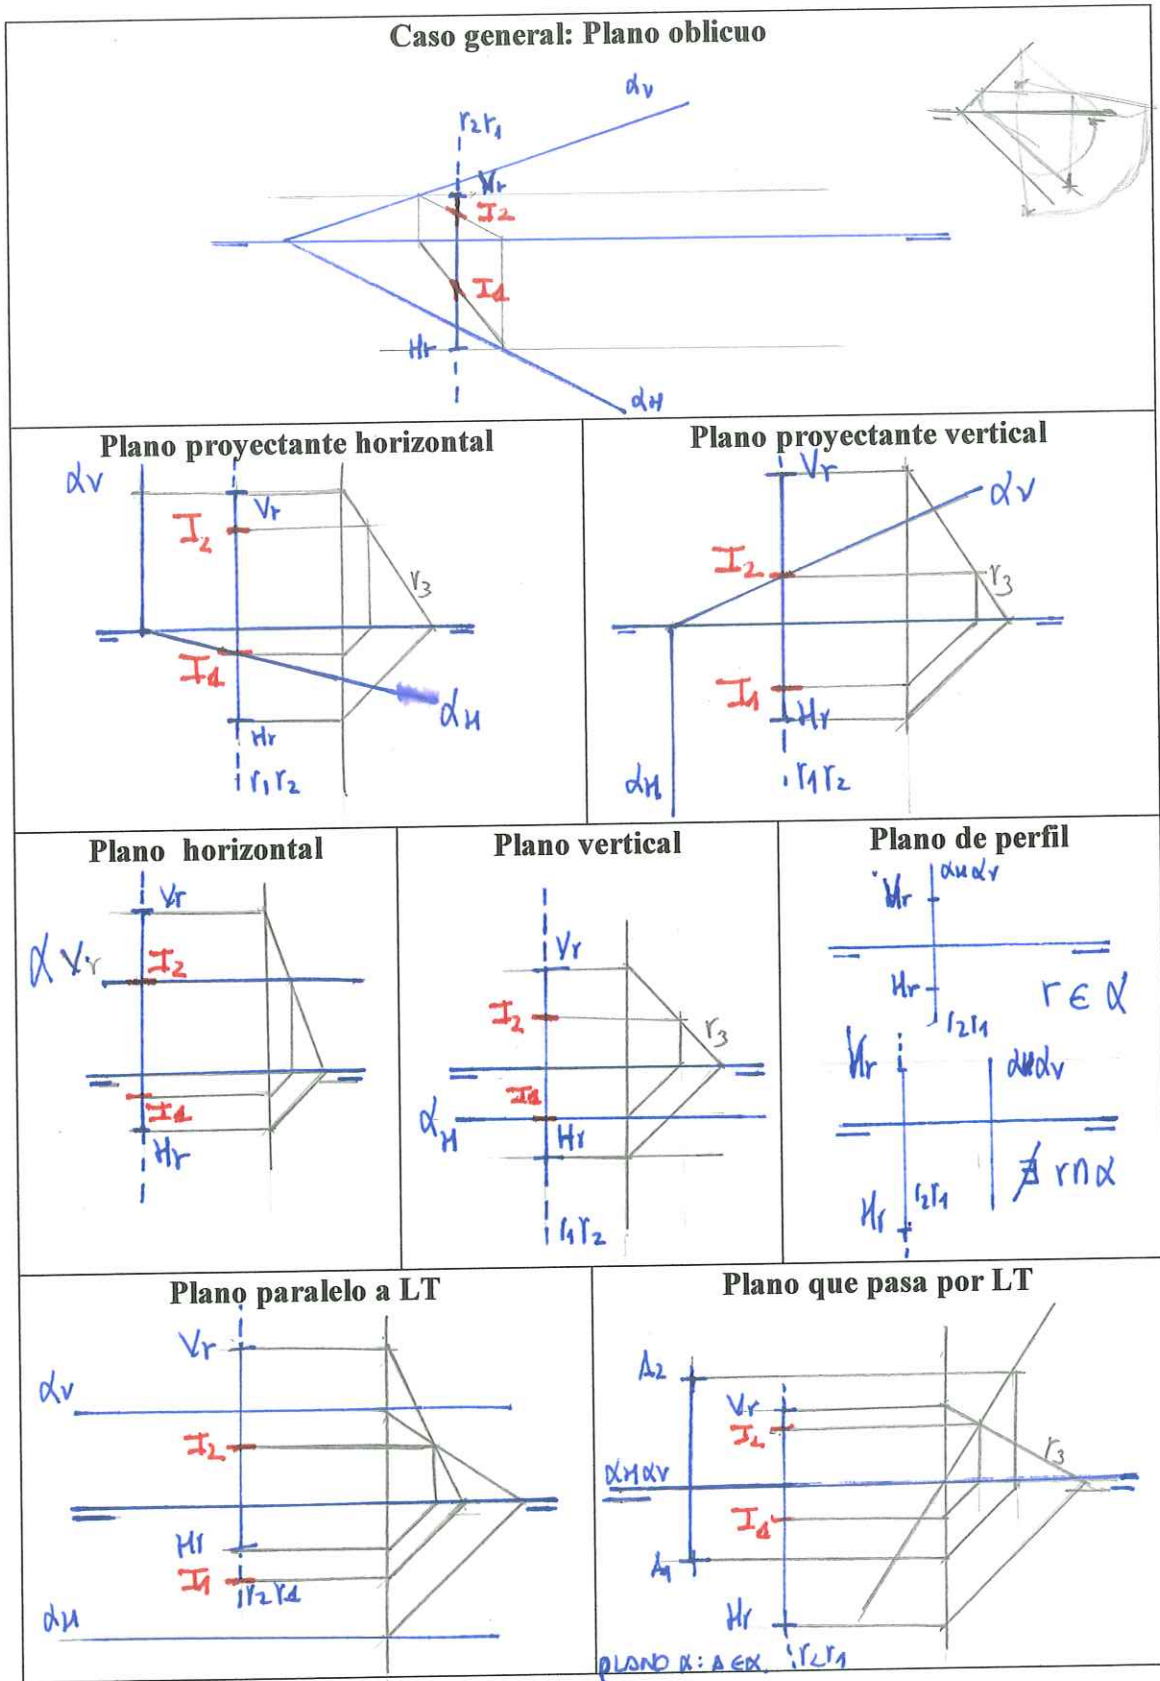 Caso general: Plano oblicuo
αV
r2r1
Vr
I2
I1
Hr
αH
Plano proyectante horizontal
αV
Vr
I2
r3
I1
αH
Hr
r1r2
Plano proyectante vertical
Vr
αV
I2
r3
I1
Hr
αH
r1r2
Plano horizontal
Vr
α Vr
I2
I1
Hr
Plano vertical
Vr
I2
r3
I1
αH
Hr
r1r2
Plano de perfil
αHαV
Vr
Hr
r ∈ α
r2r1
Vr
αHαV
r2r1
∄ r∩α
Hr
Plano paralelo a LT
Vr
αV
I2
Hr
I1
r2r1
αH
Plano que pasa por LT
A2
Vr
I2
r3
αHαV
I1
A1
Hr
PLANO α: A∈α
r2r1